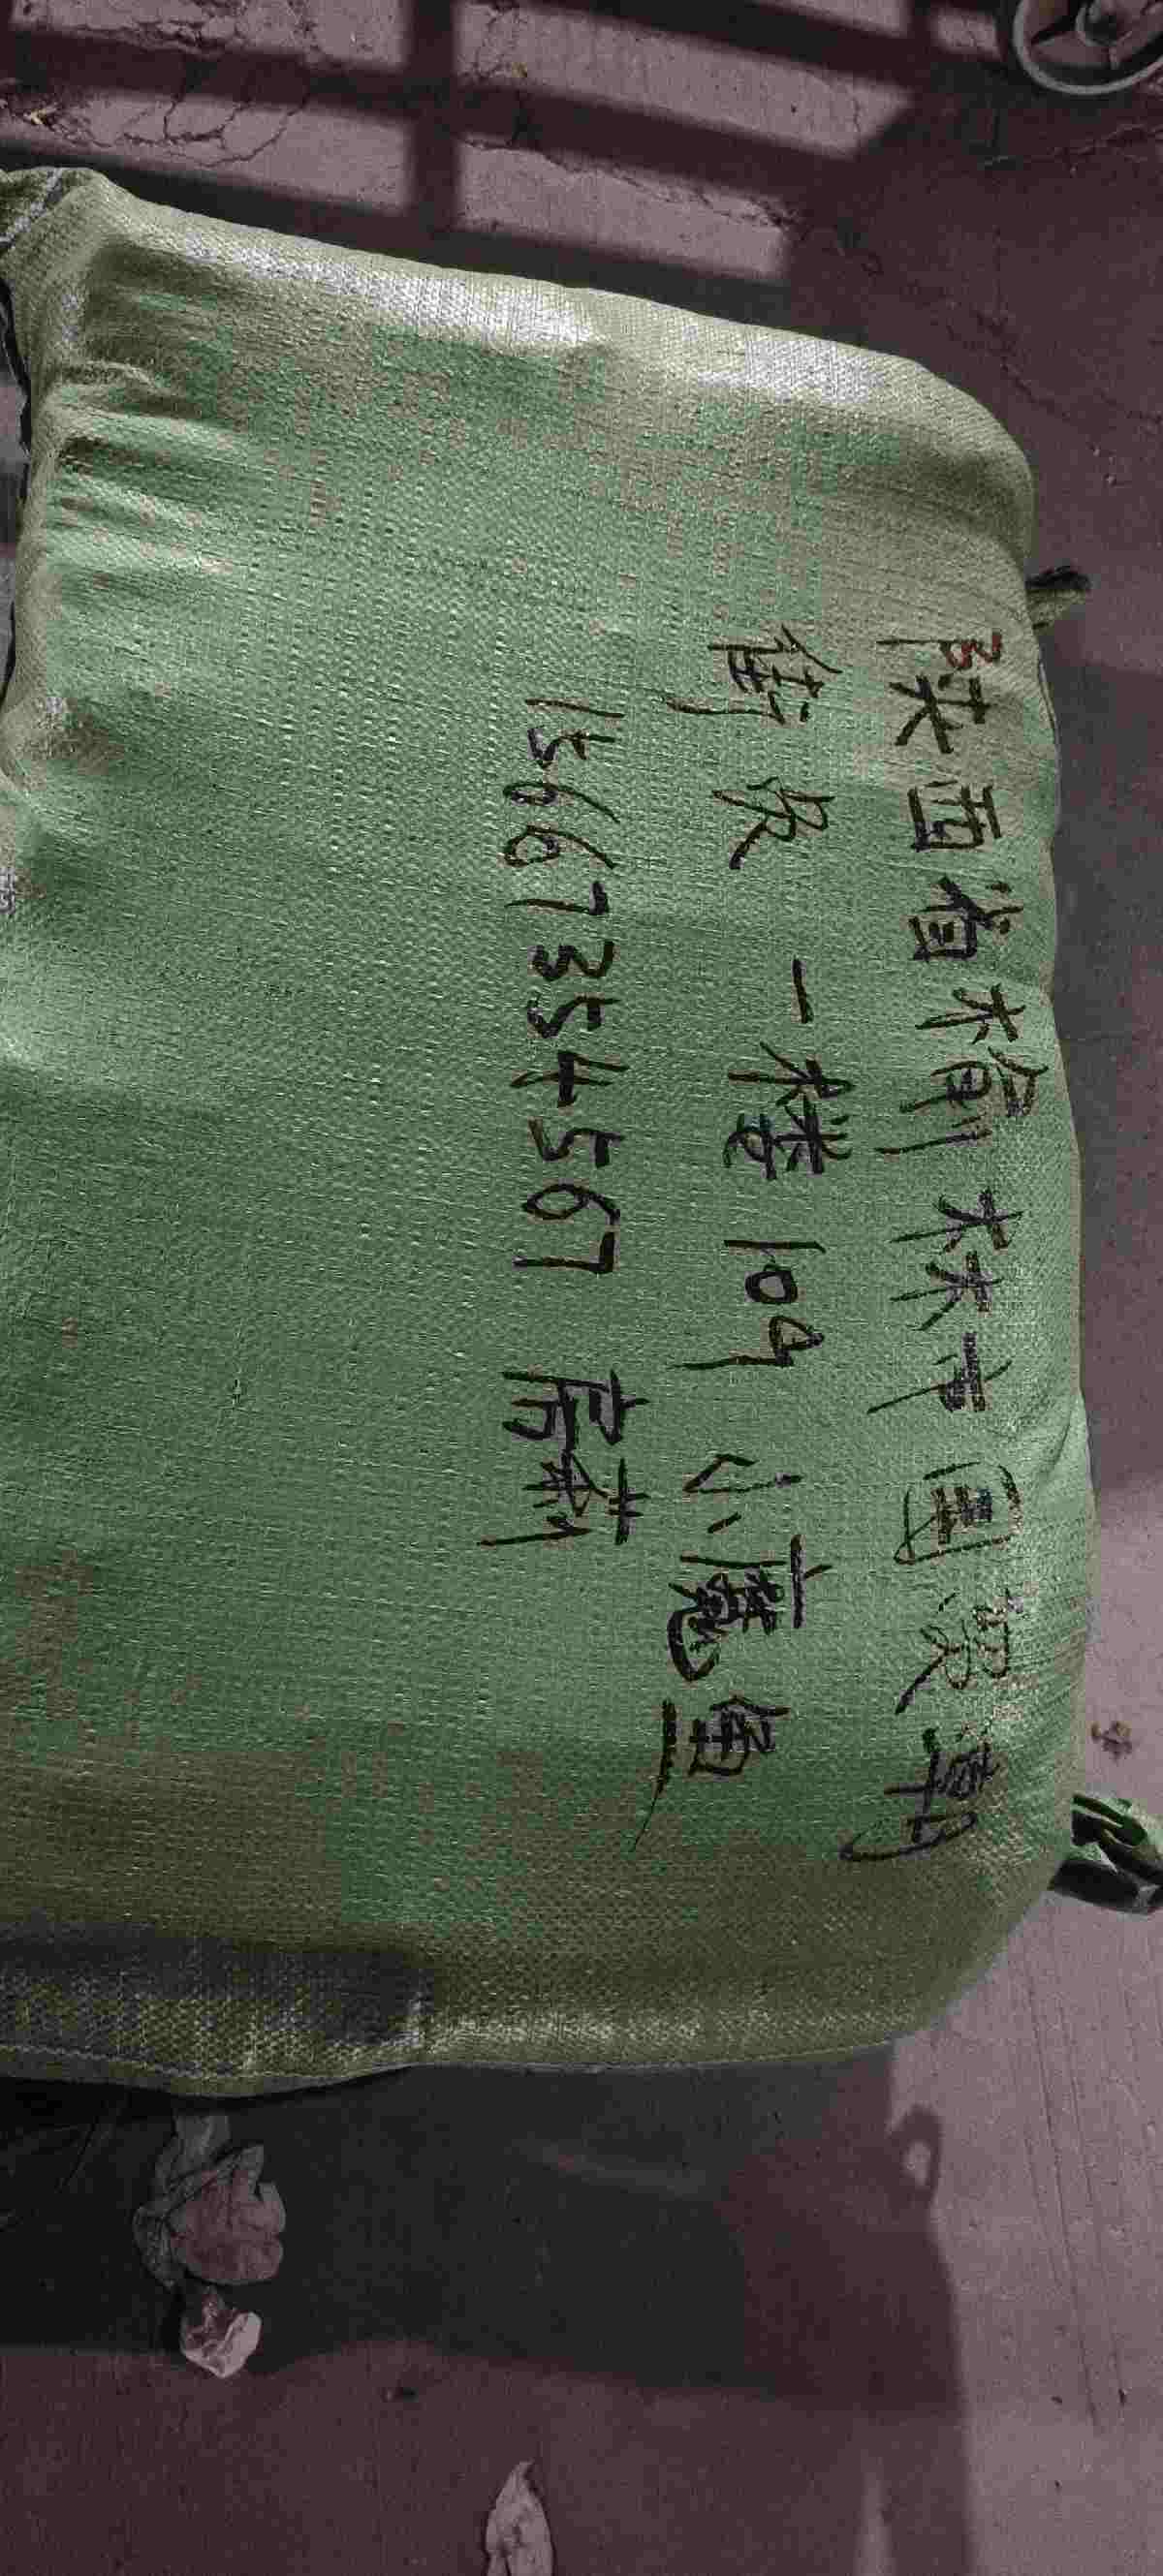 陕西省榆林市国贸草
街景一楼109小魔鱼
15667354567高莉